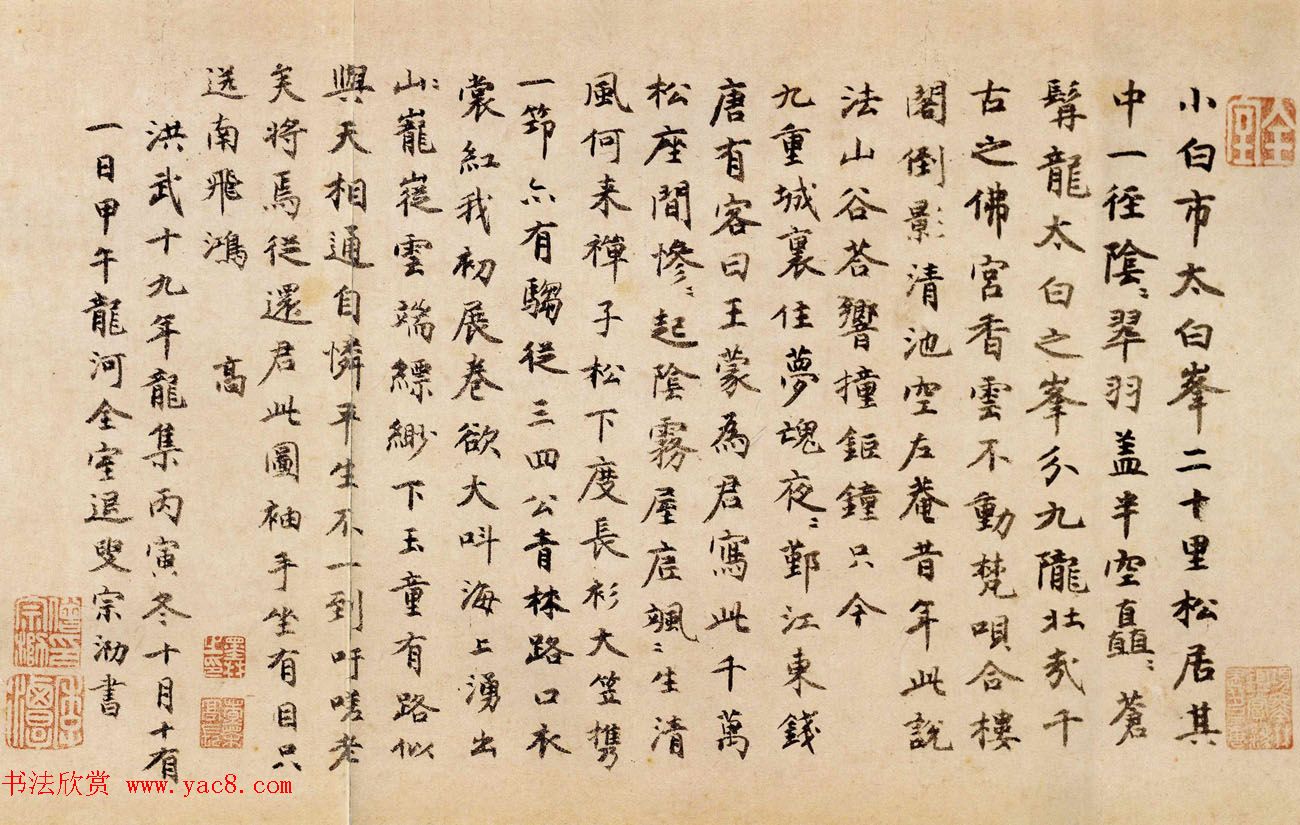 小白市太白峯二十里松居其
中一徑陰〻翠羽盖半空直矗〻蒼
髯龍太白之峯分九隴壯哉千
古之佛宮香雲不動梵唄合樓
閣倒影清池空左菴昔年此說
法山谷荅響撞鉅鐘只今
九重城裏住夢魂夜〻鄞江東錢
唐有客曰王蒙為君寫此千萬
松座間慘〻起陰霧屋底颯〻生清
風何来禪子松下度長衫大笠攜
一筇亦有騶從三四公青林路口衣
裳紅我初展卷欲大呌海上湧出
山〻巃嵸雲端縹緲下玉童有路似
與天相通自憐平生不一到吁嗟老
矣將焉從還君此圖袖手坐有目只
送南飛鴻 高
洪武十九年龍集丙寅冬十月十有
一日甲午龍河全室退叟宗泐書
全室
书法欣赏 www.yac8.com